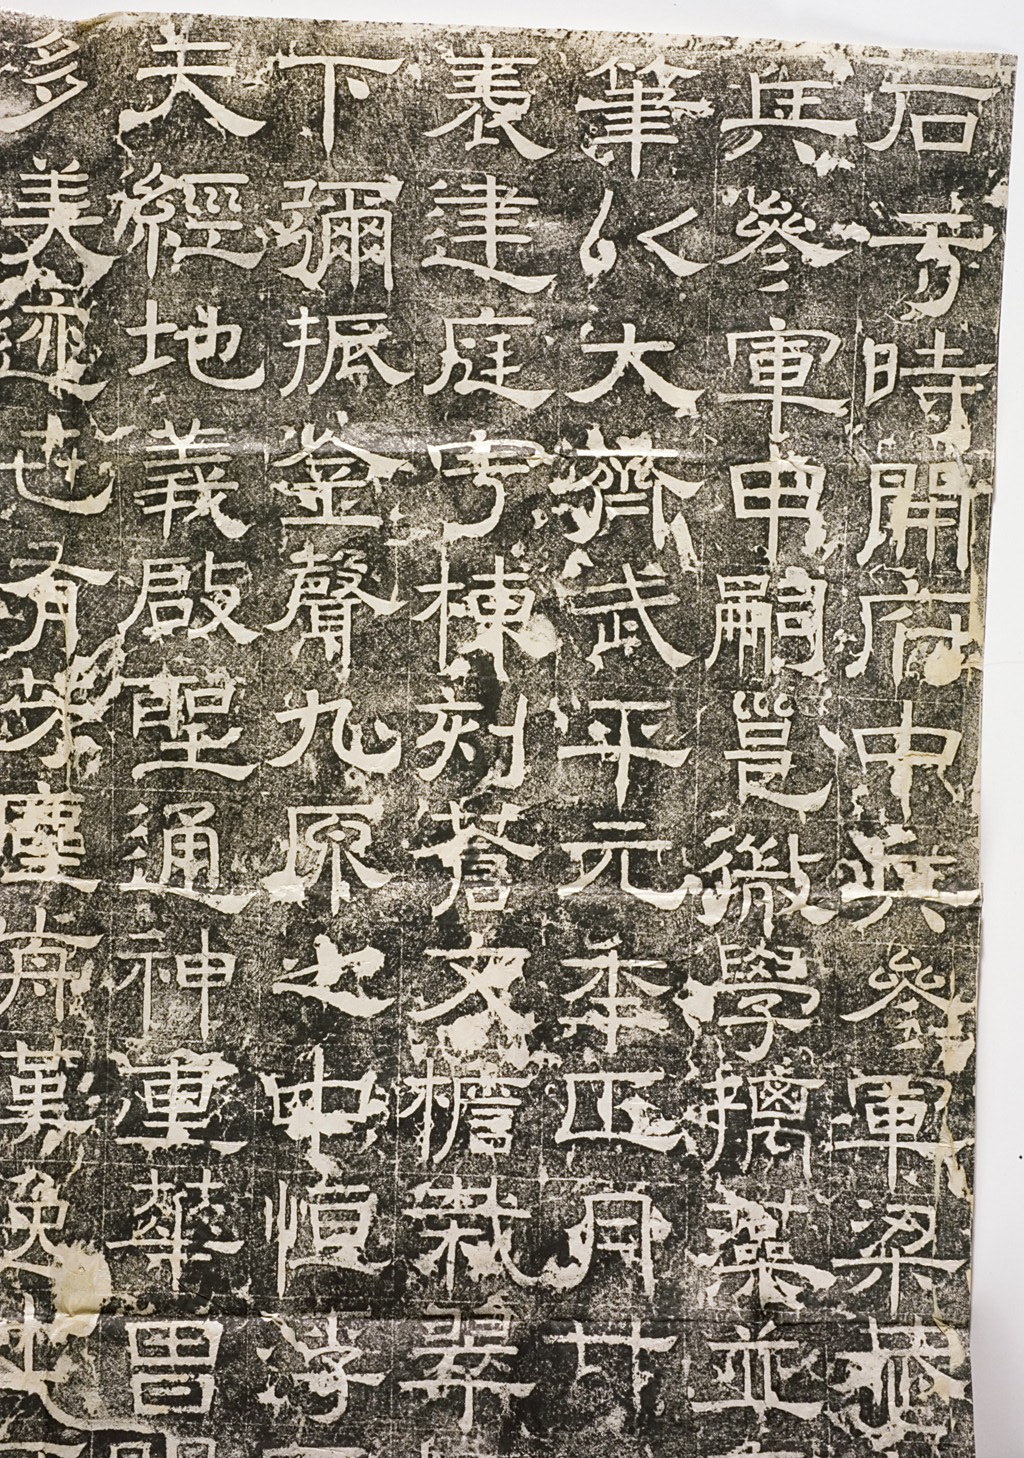 石于時開府中兵參軍梁恭
兵參軍申嗣邕微學摛藻並
筆以大齊武平元年正月廿
裹建庭宇棟刻蒼文檐栽翠
下彌振金聲九原之中恒
夫經地義啟聖通神重華曾
美迹也有芬塵